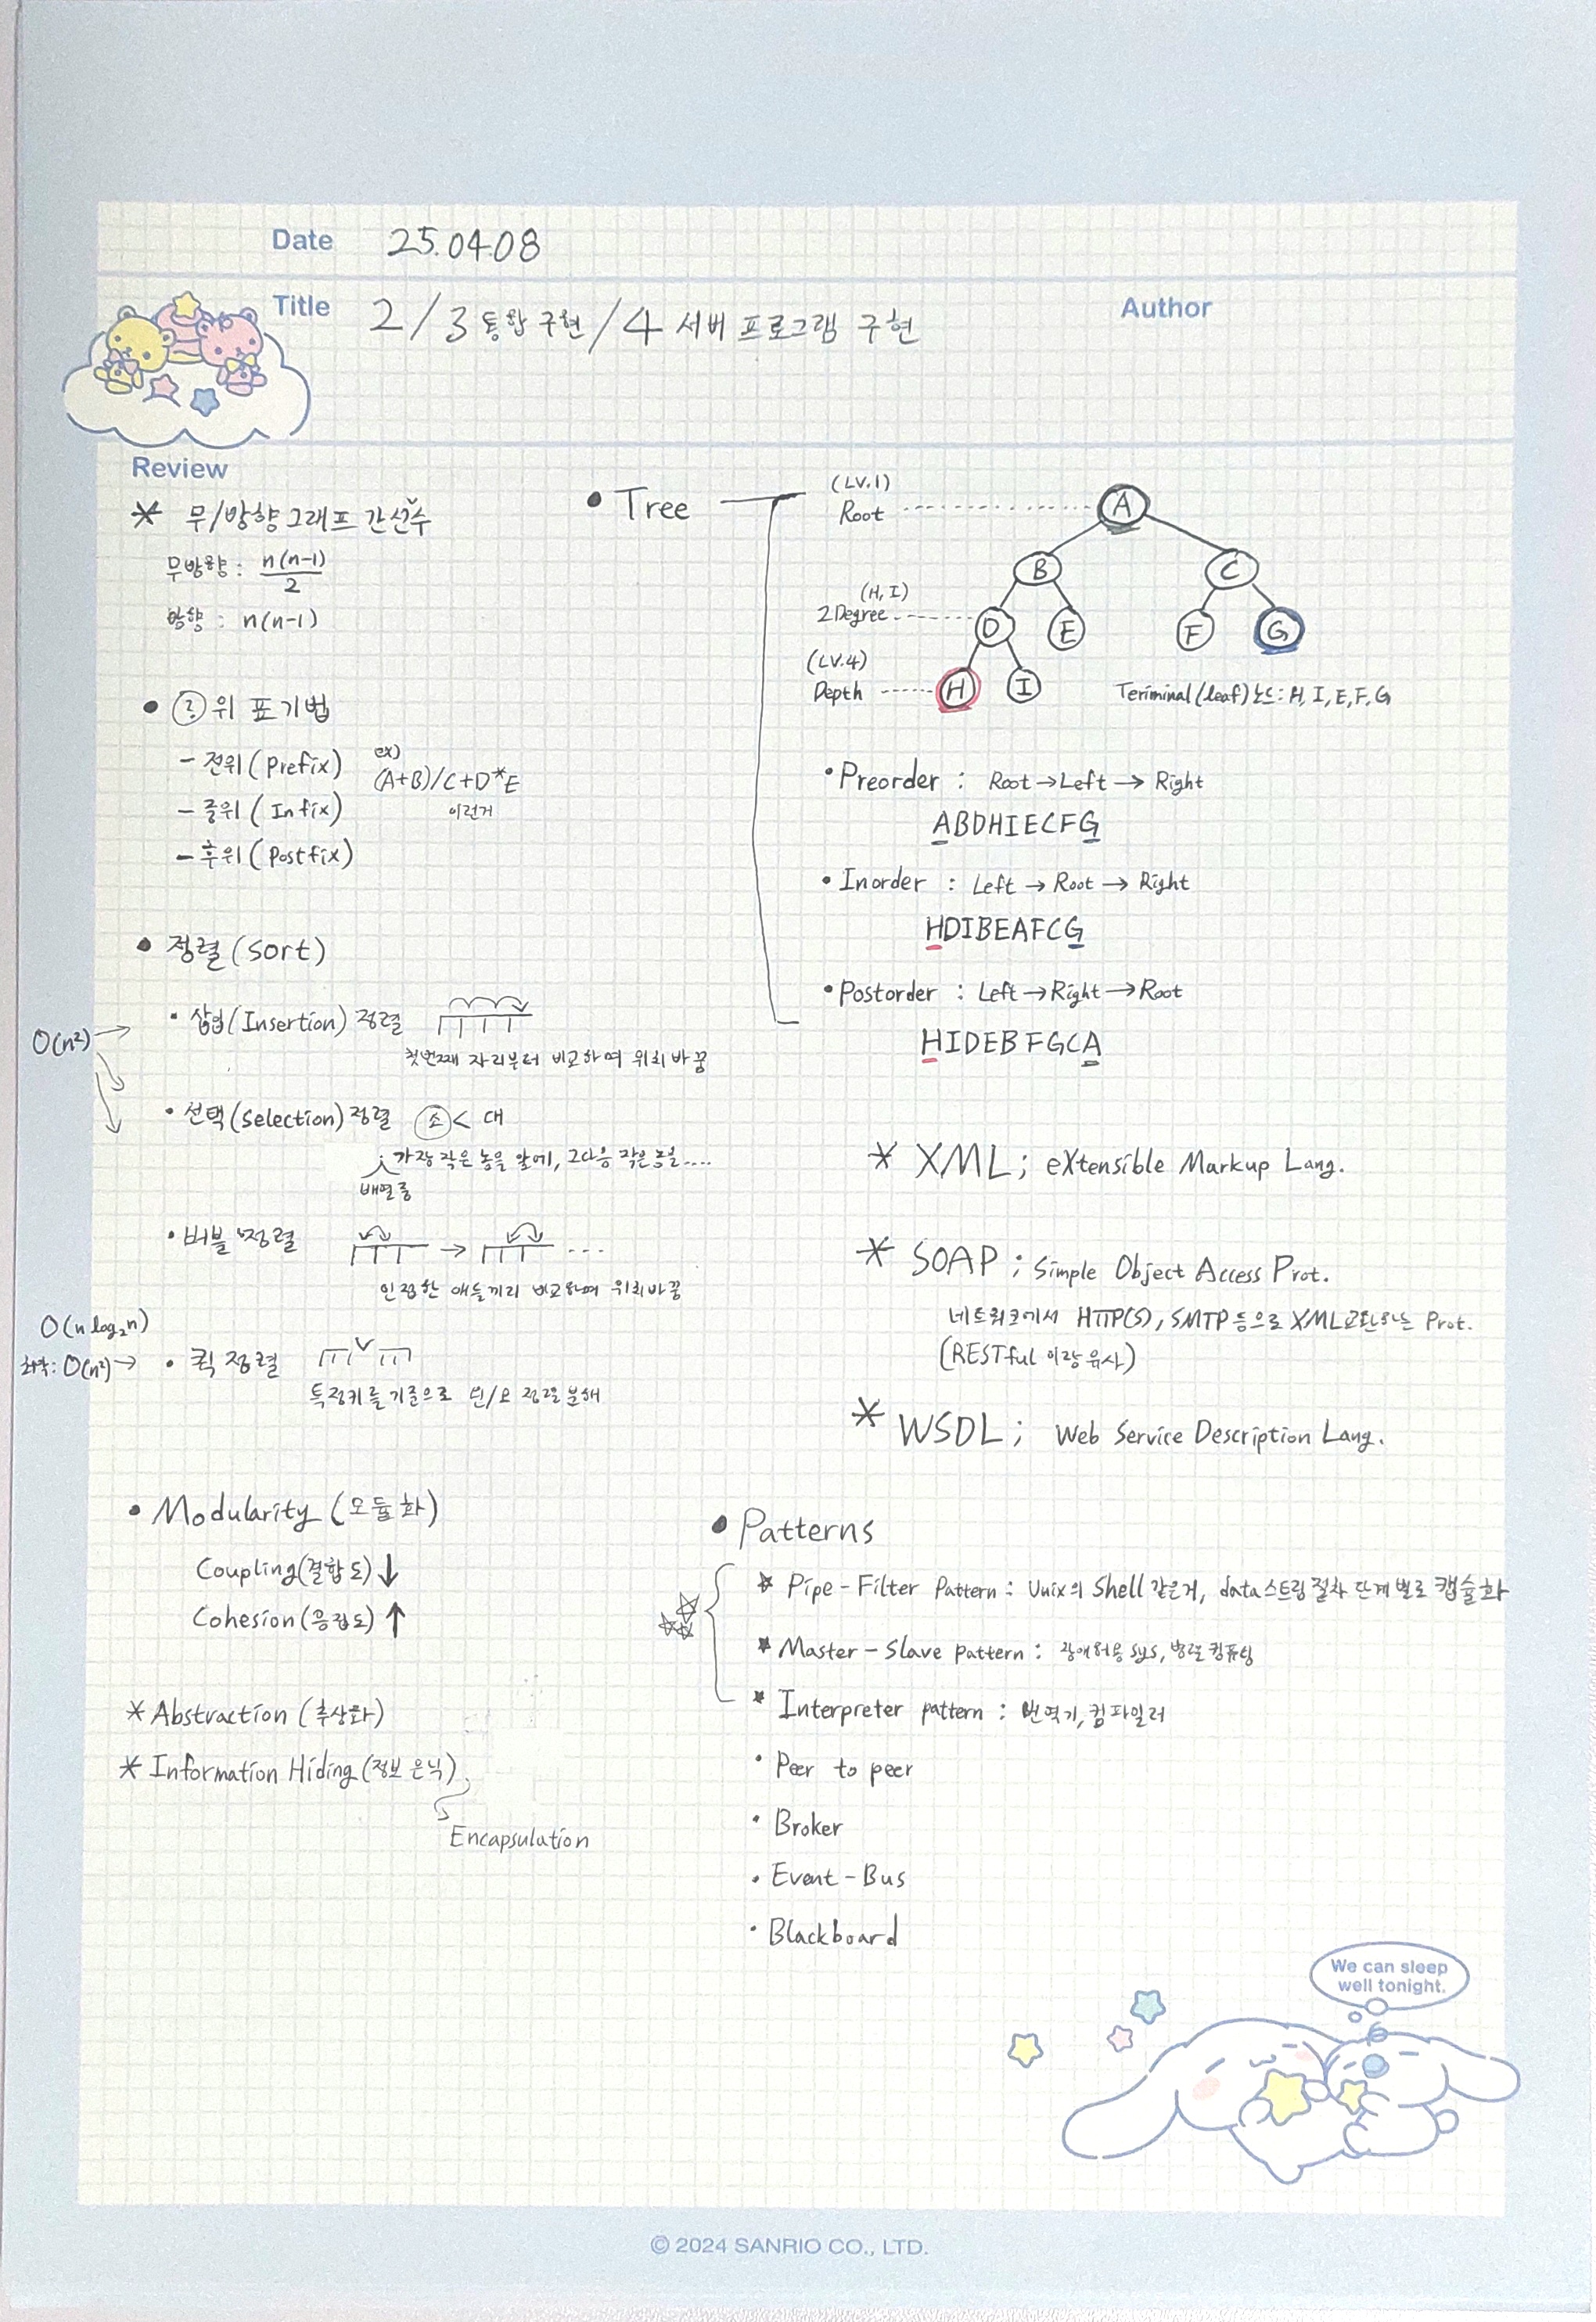 Date 25.04.08
Title 2/3 통합 구현/4 서버 프로그램 구현
Author
Review
* 무/방향그래프 간선수
무방향: n(n-1)/2
방향: n(n-1)
• ?위 표기법
- 전위(Prefix)
ex)
(A+B)/C+D*E
이런거
- 중위(Infix)
- 후위(Postfix)
• 정렬(Sort)
• 삽입(Insertion) 정렬
O(n²)
첫번째 자리부터 비교하며 위치바꿈
• 선택(Selection)정렬 소 < 대
가장 작은 놈을 앞에, 그다음 작은놈을....
배열중
• 버블 정렬
인접한 애들끼리 비교하며 위치바꿈
O(n log₂n)
최악: O(n²)
• 퀵 정렬
특정키를 기준으로 왼/오 정렬 분해
• Modularity (모듈화)
Coupling(결합도)↓
Cohesion(응집도)↑
* Abstraction (추상화)
* Information Hiding (정보 은닉)
Encapsulation
• Tree
(LV.1)
Root
A
B C
(H, I)
2Degree
D E F G
(LV.4)
Depth
H I
Teriminal(leaf)노드: H, I, E, F, G
• Preorder : Root→Left→Right
ABDHIECFG
• Inorder : Left→Root→Right
HDIBEAFCG
• Postorder : Left→Right→Root
HIDEBFGCA
* XML; eXtensible Markup Lang.
* SOAP; Simple Object Access Prot.
네트워크에서 HTTP(S), SMTP 등으로 XML교환하는 Prot.
(RESTful 이랑 유사)
* WSDL; Web Service Description Lang.
• Patterns
★ Pipe-Filter Pattern: Unix의 Shell 같은거, data스트림 절차 단계별로 캡슐화
★ Master-Slave pattern: 장애허용 sys, 병렬컴퓨팅
★ Interpreter pattern : 번역기, 컴파일러
• Peer to peer
• Broker
• Event-Bus
• Blackboard
We can sleep
well tonight.
© 2024 SANRIO CO., LTD.